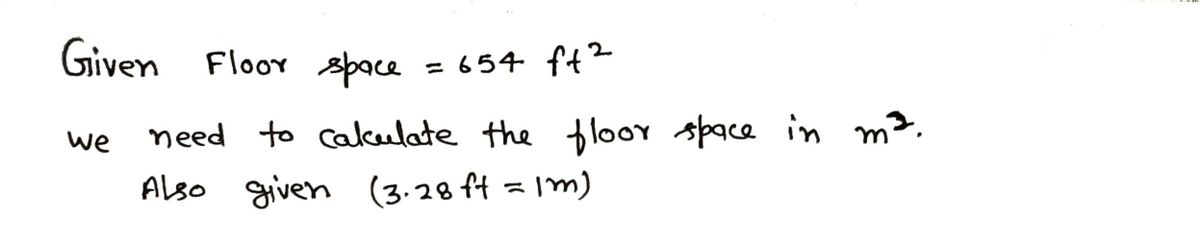 Given Floor space = 654 ft²
we need to calculate the floor space in m².
Also given (3.28 ft = 1m)